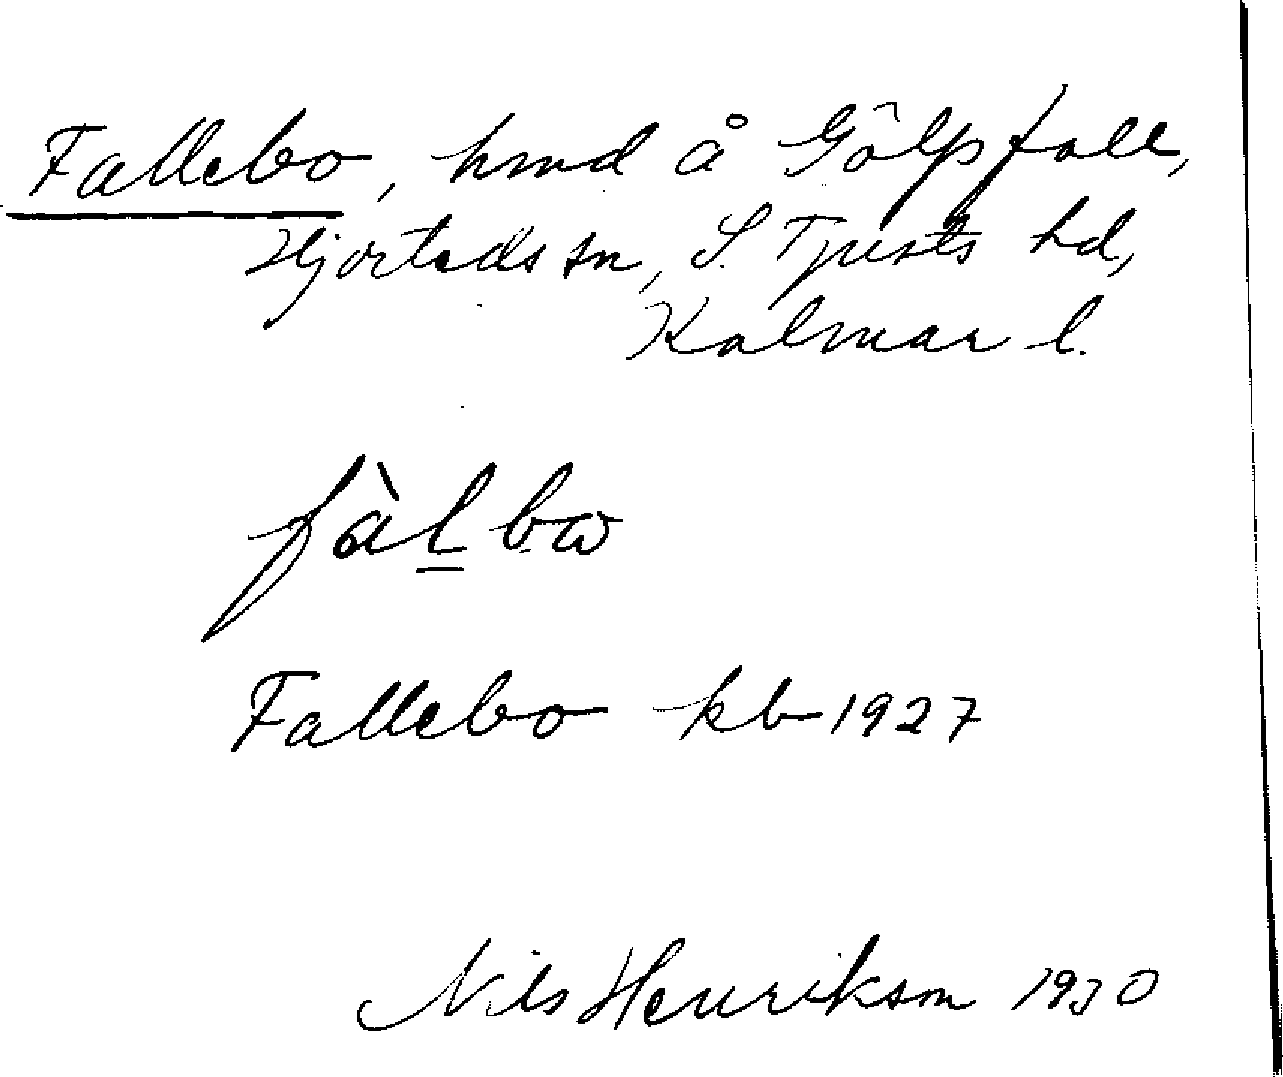 Fallebo, hmd å Gölpfall,
Hjorteds sn, S. Tjusts hd,
Kalmar l.
fàl̲bω
Fallebo kb 1927
Nils Henrikson 1930